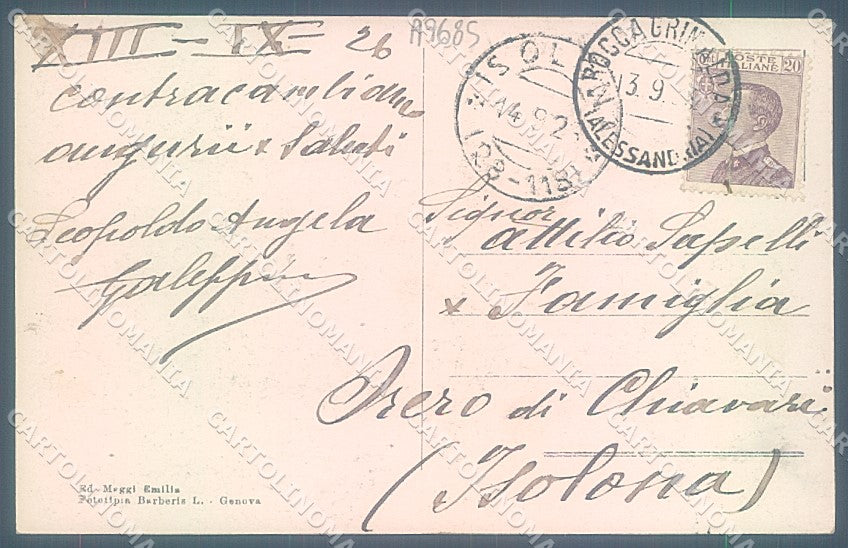 XIII - IX = 26
A9685
contracambiamo
auguri e Saluti
Leopoldo Angela
Galeppini
ISOL
14.9.2
(28-118)
ROCCA GRIMALDA
13.9.
(ALESSANDRIA)
POSTE ITALIANE 20
Signor
Attilio Sapelli
e Famiglia
Orero di Chiavari
(Isolona)
Ed. Maggi Emilia
Fototipia Barberis L. - Genova
CARTOLINOMANIA